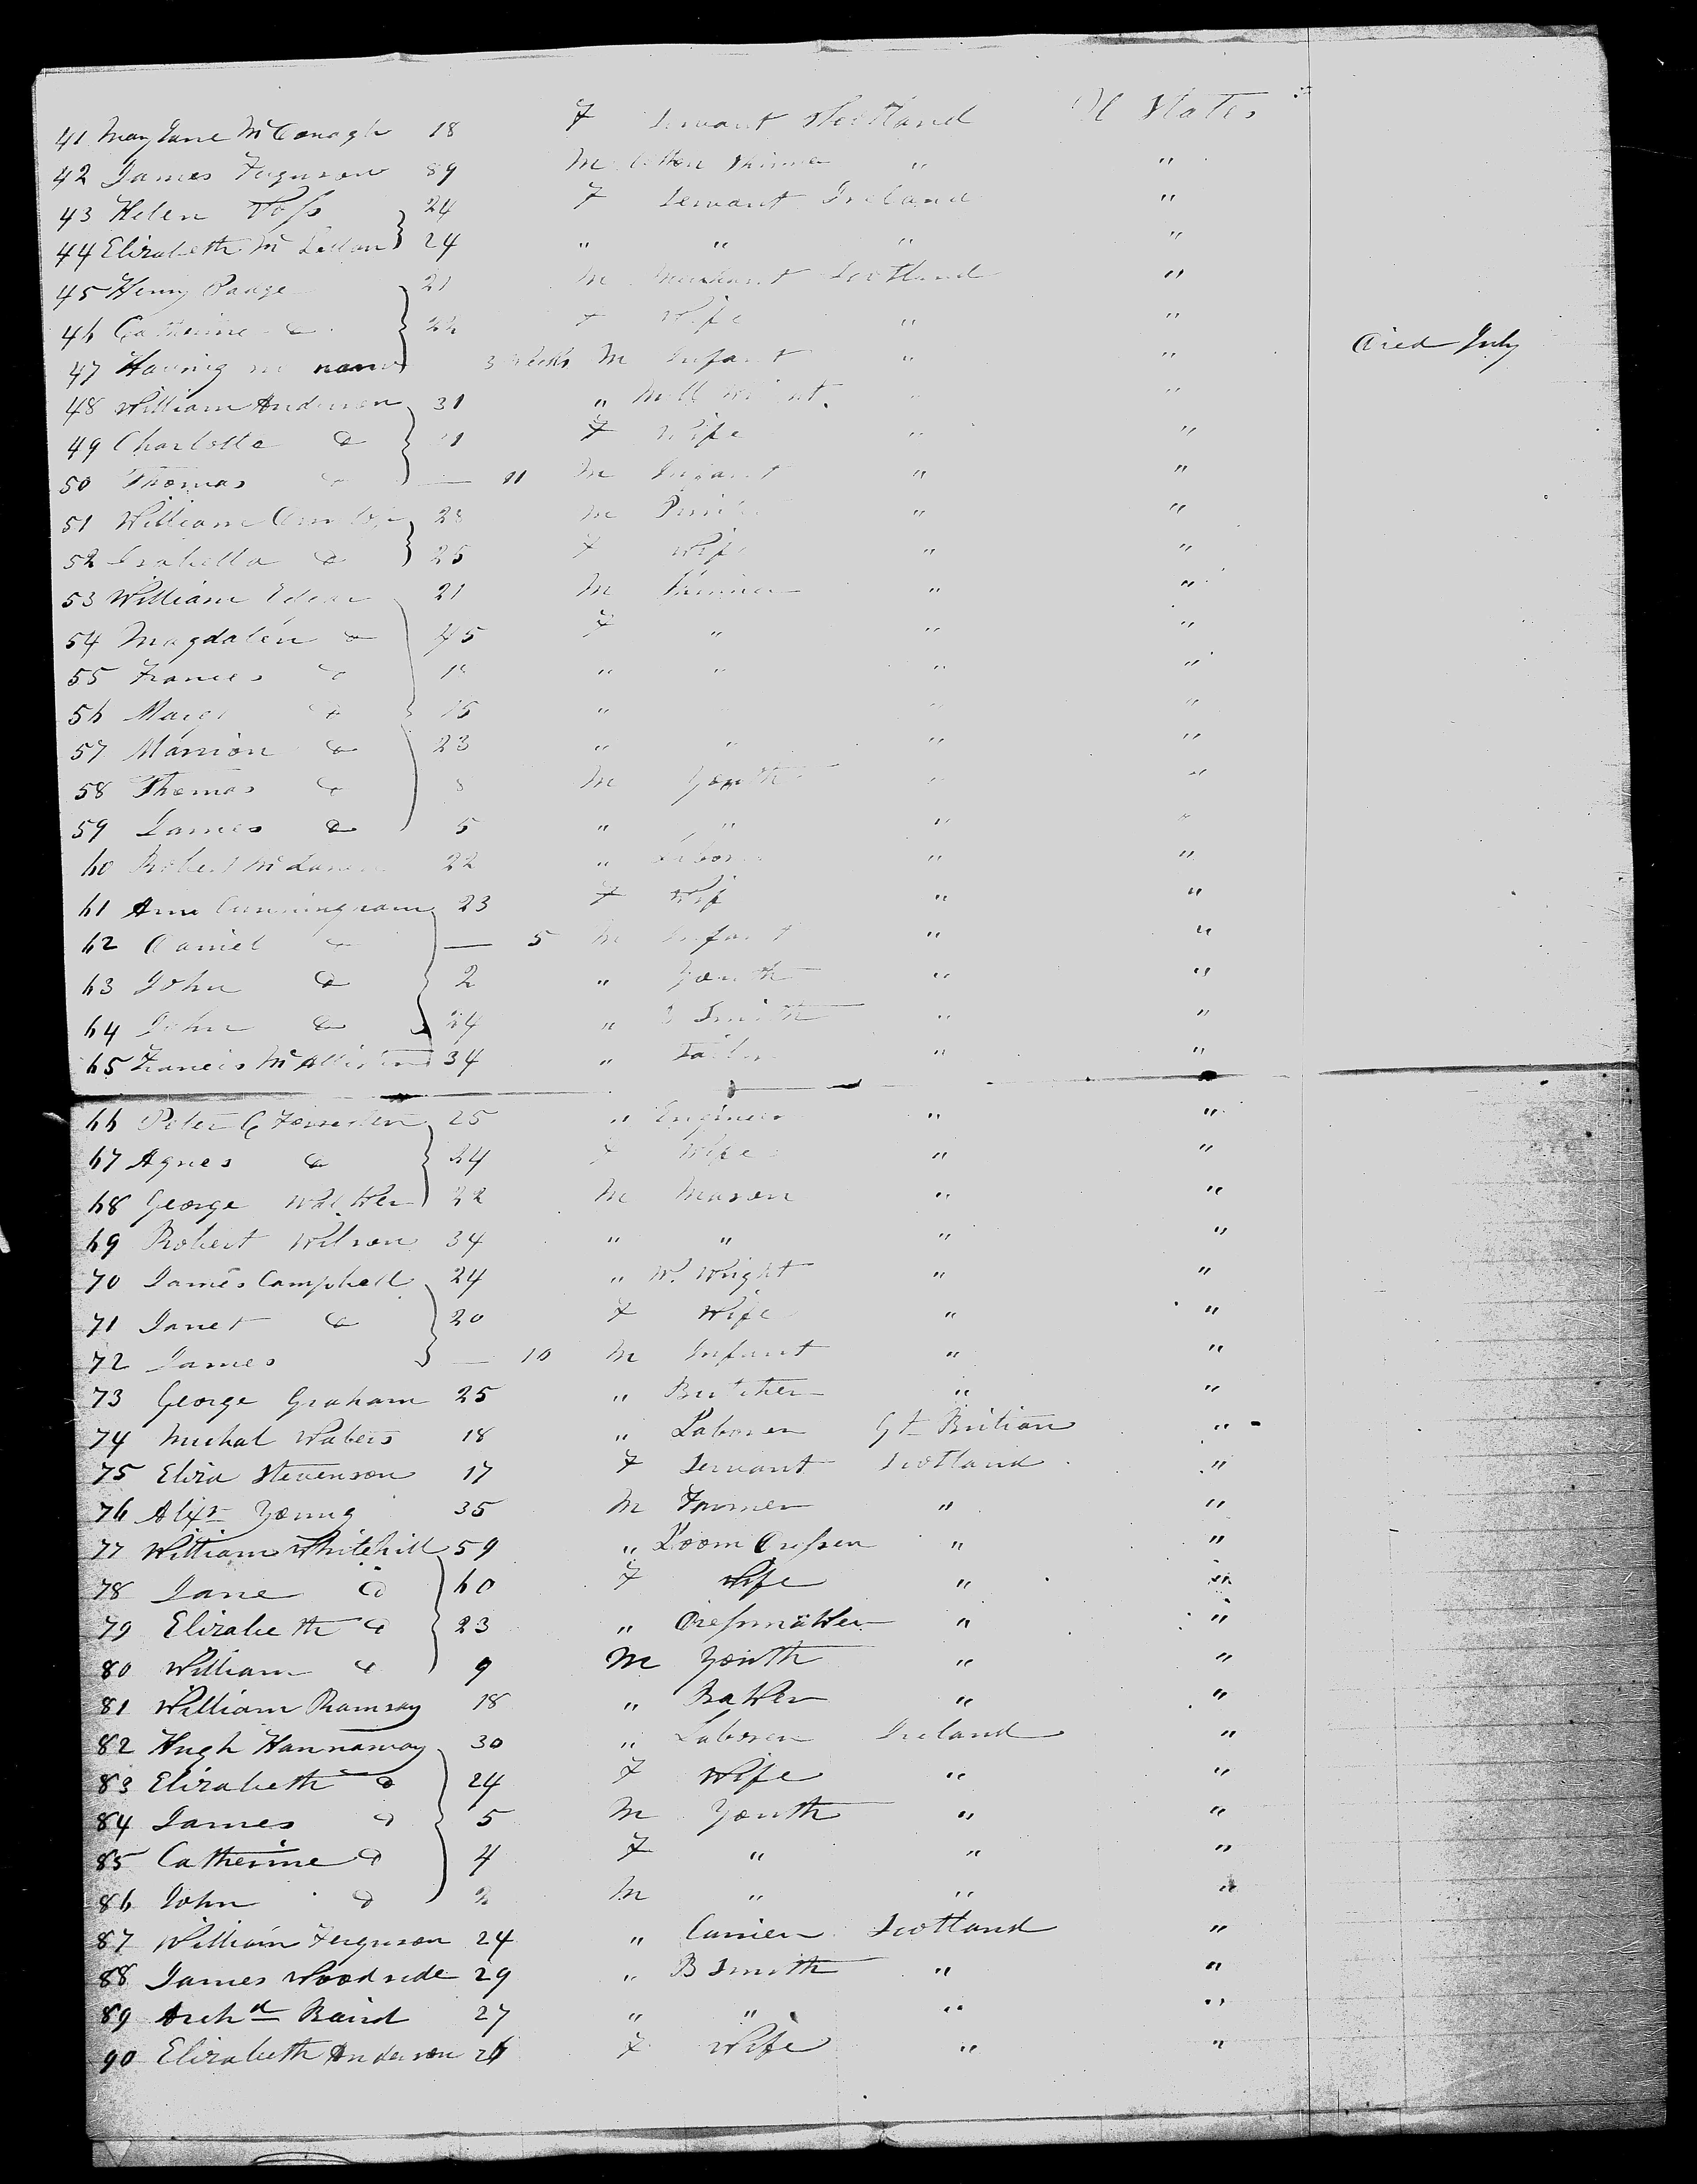 41 Mary Jane McConagh 18 F Servant Scotland U States
42 James Ferguson 39 M Cotton Spinner " "
43 Helen Ross 24 F Servant Ireland "
44 Elizabeth Mc 24 " " " "
45 Henry 21 M Scotland "
46 Catherine Do 22 F Wife " "
47 Having no name 3 weeks M Infant " " Died July
48 William Anderson 31 " Mill Wright " "
49 Charlotte Do F Wife " "
50 Thomas Do — 11 M Infant " "
51 William 28 M " "
52 Isabella Do 25 F Wife " "
53 William 21 M " "
54 Magdalen Do 45 F " " "
55 Frances Do " " " "
56 Do 15 " " "
57 Marrion Do 23 " " " "
58 Thomas Do 8 M Youth " "
59 James Do 5 " " " "
60 Robert McLaren 22 " Labor " "
61 Ann Cunningham 23 F Wife " "
62 Daniel Do — 5 M Infant " "
63 John Do 2 " Youth " "
64 John Do 24 " B Smith " "
65 Francis McAllister 34 " Tailor " "
66 Peter C 25 " Engineer " "
67 Agnes Do 24 F Wife " "
68 George Walker 22 M Mason " "
69 Robert Wilson 34 " " " "
70 James Campbell 24 " W. Wright " "
71 Janet Do 20 F Wife " "
72 James — 10 M Infant " "
73 George Graham 25 " Butcher " "
74 Michal Waters 18 " Laborer Gt Britian "
75 Eliza Stevenson 17 F Servant Scotland "
76 Alexr Young 35 M Farmer " "
77 William Whitehill 59 " Loom Dresser " "
78 Jane Do 60 F Wife " "
79 Elizabeth Do 23 " Dressmaker " "
80 William Do 9 M Youth " "
81 William Ramsay 18 " Baker " "
82 Hugh Hannaway 30 " Laborer Ireland "
83 Elizabeth Do 24 F Wife " "
84 James Do 5 M Youth " "
85 Catherine Do 4 F " " "
86 John Do 2 M " " "
87 William Ferguson 24 " Currier Scotland "
88 James Woodside 29 " B Smith " "
89 Archd Baird 27 " " " "
90 Elizabeth Anderson 26 F Wife " "